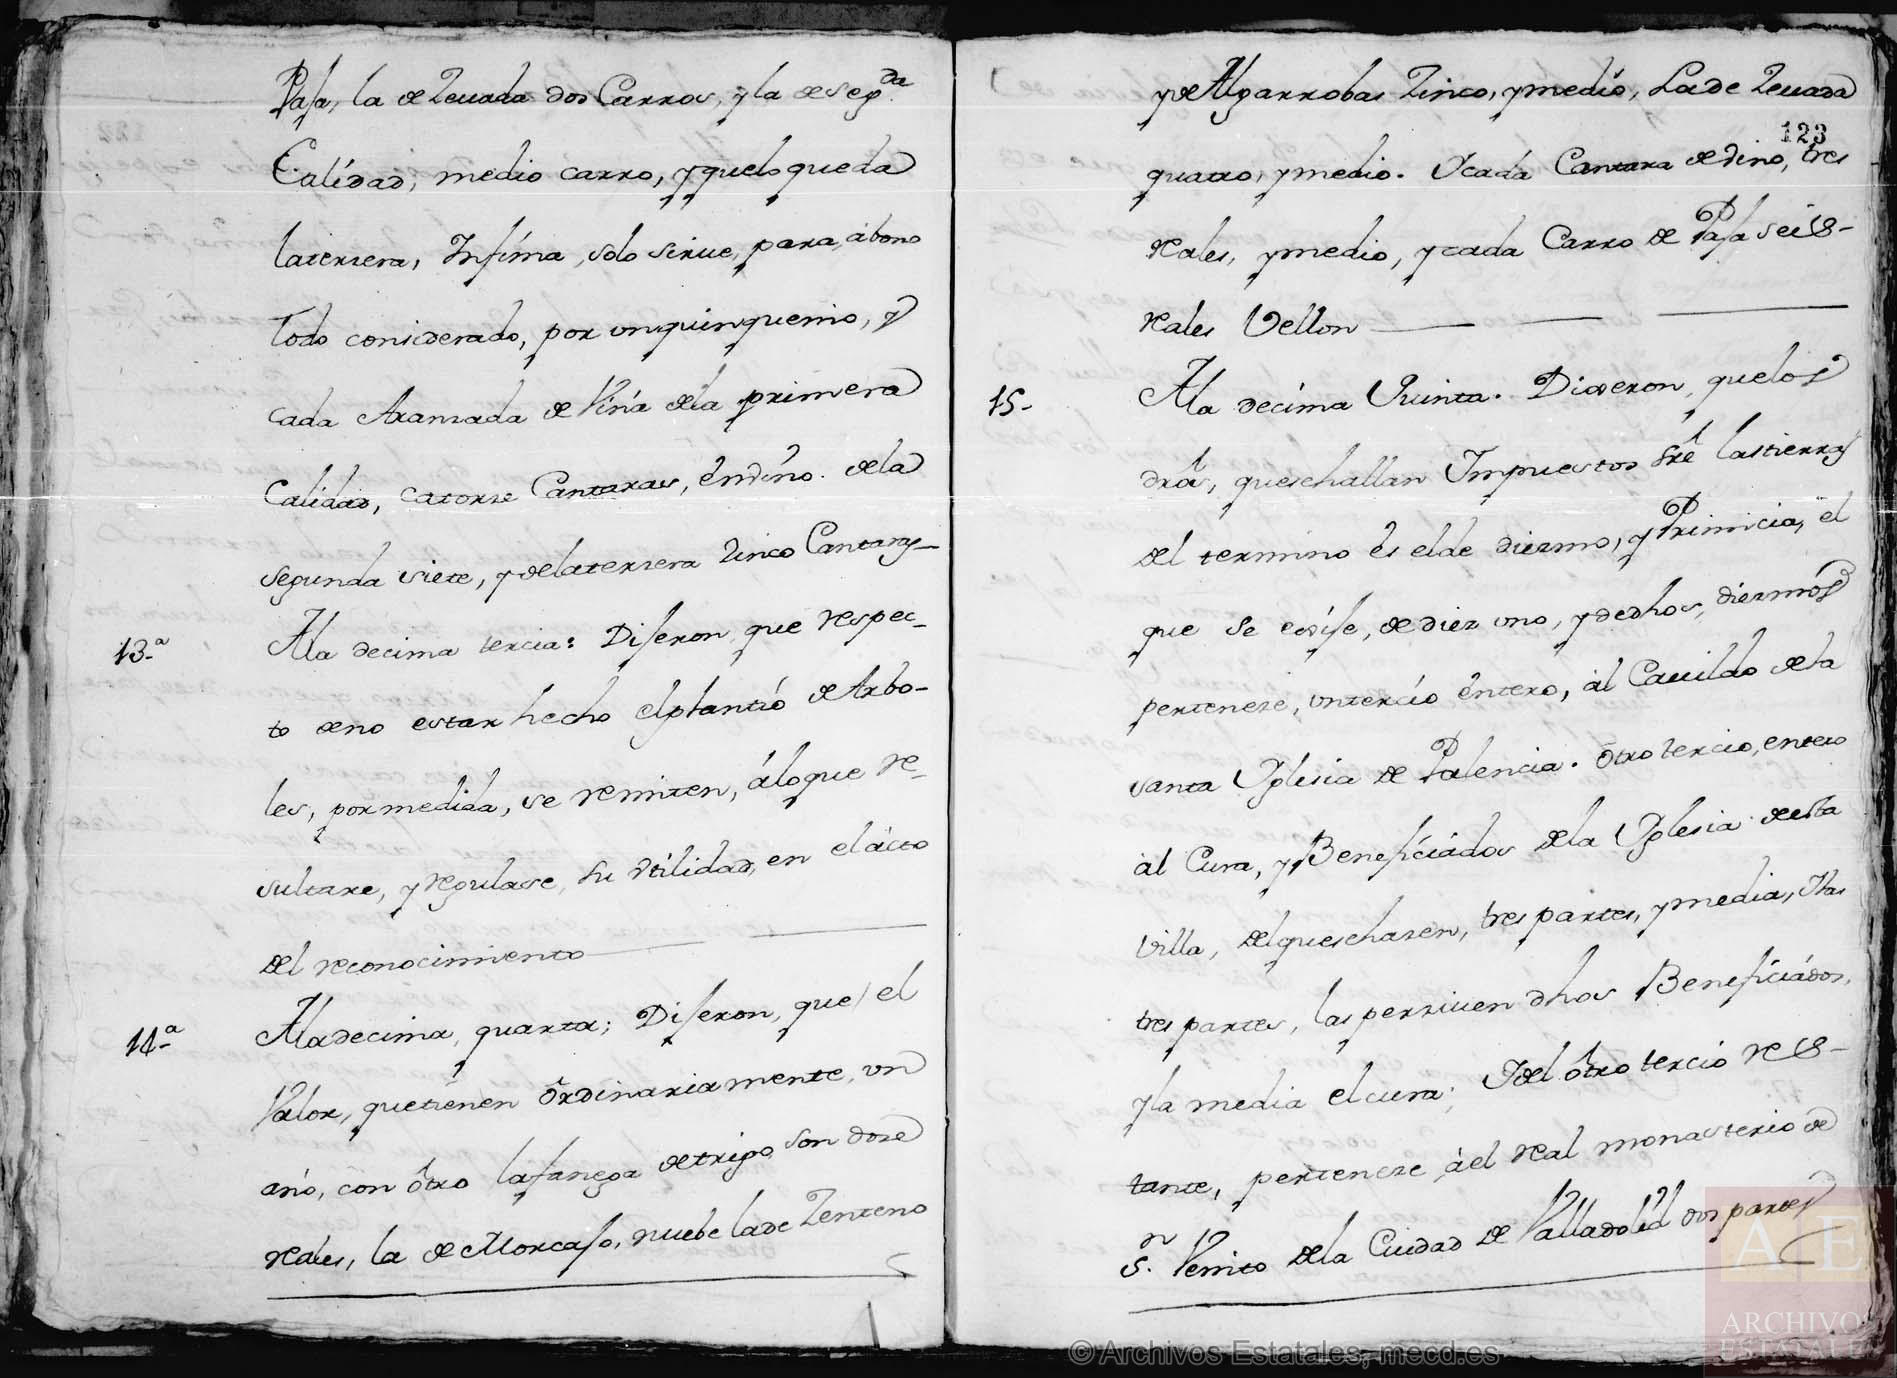 Pasa, la de Zeuada dos Carros, y la de seg.da
Calidad, medio carro, y que lo queda
la terzera, Infíma, solo sirue, para, abono
Todo considerado, por un quinquenio, y
cada Aranzada de Viña dela primera
Calidad, catorze Cantaras, en vino. dela
segunda siete, y dela terzera Zinco Cantaras
13.ª
Ala decima tercia: Diseron, que respec-
to de no estar hecho el plantío de Arbo-
les, por medida, se remiten, á lo que re-
sultare, y regulase, su vtilidad, en el ácto
del reconocimiento
14.ª
Ala decima, quarta; Diseron, que el
Valor, que tienen órdinariamente, vn
año, con ótro la fanega de trigo son doze
reales, la de Morcaso, nuebe la de Zenteno
y de Algarrobas Zinco, y medio, La de Zeuada
123
quatro, y medio. Ycada Cantara de vino, tres
reales, y medio, y cada Carro de Pasa seis
reales Vellon
15-
Ala decíma Quinta. Dixeron, que los
drôs, que se hallan Impuestos sre las tierras
del termino és el de diezmo, y Primicia, el
que se exíse, de diez vno, y de dhos, diezmos
perteneze, vn tercío éntero, ál Cauildo dela
santa Yglesia de Palencia. ótro tercio, entero
al Cura, y Beneficiádos dela Yglesia desta
villa, del que se hazen, tres partes, y media, Ylas
tres partes, las perziuen dhos Beneficiádos,
y la media el cura; Ydel ótro tercio res-
tante, perteneze áel real monasterio de
S.n Venito dela Ciudad de Valladolíd dos partes
© Archivos Estatales, mecd.es
AE
ARCHIVOS
ESTATALES